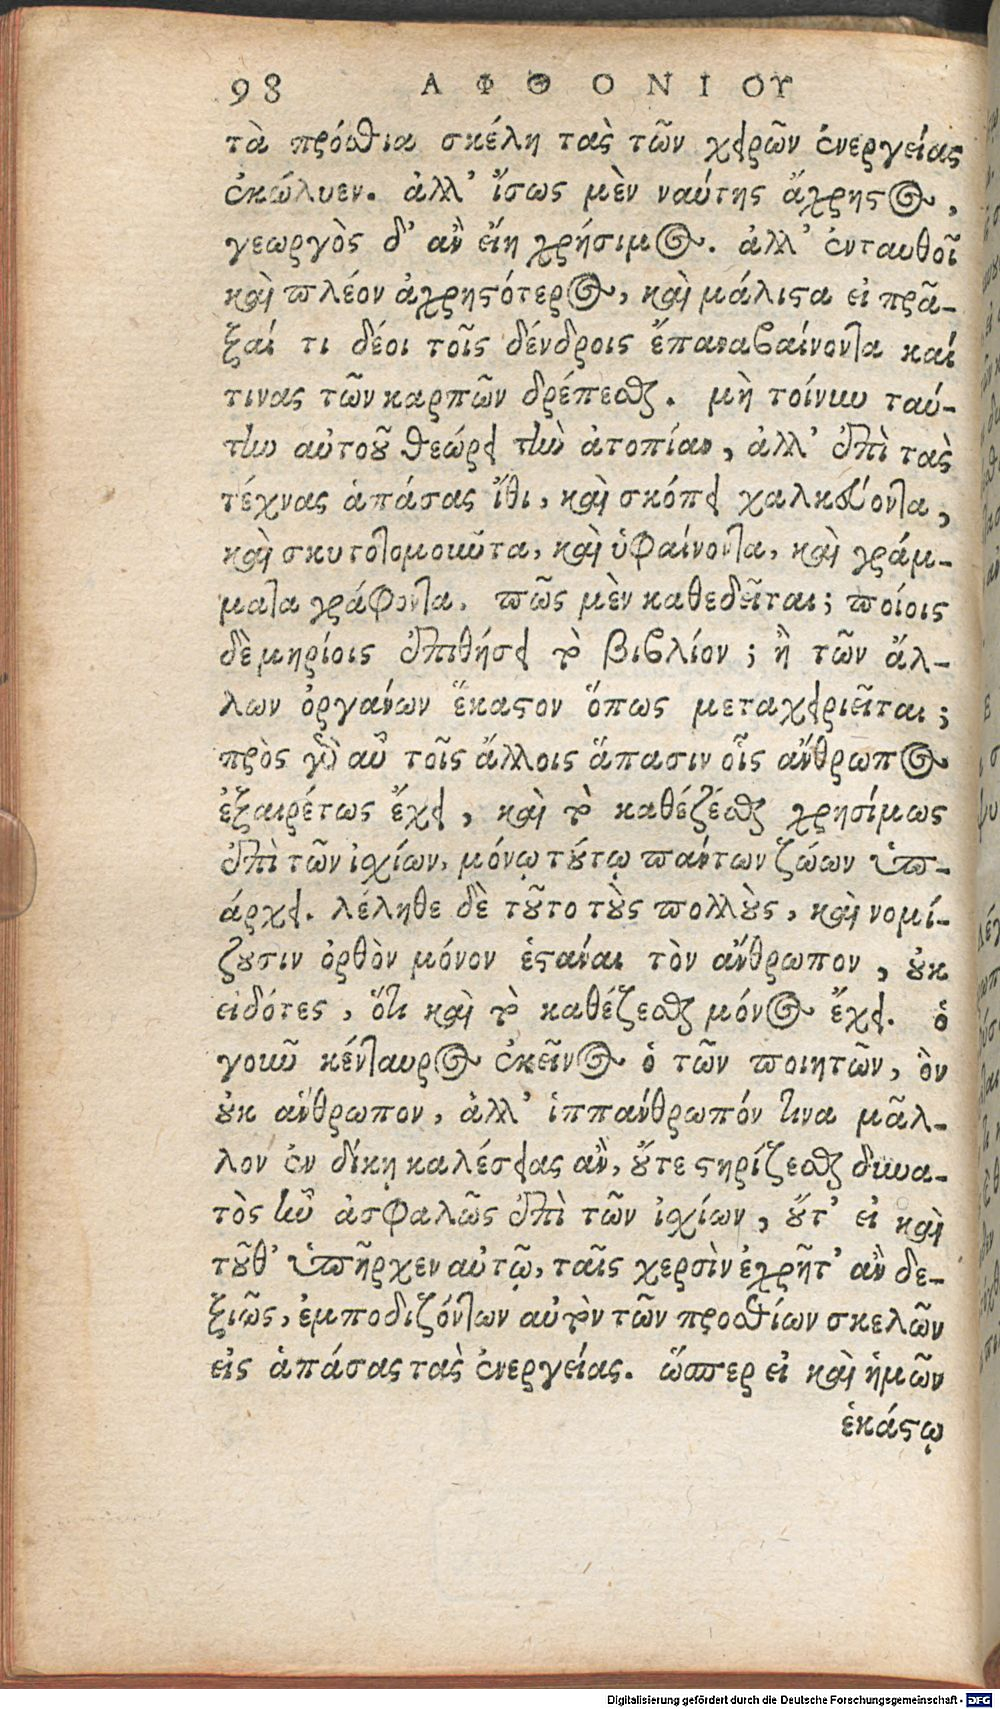 98 ΑΦΘΟΝΙΟΥ
τὰ πρόσθια σκέλη τὰς τῶν χειρῶν ἐνεργείας
ἐκώλυεν. ἀλλ' ἴσως μὲν ναύτης ἄχρηστος,
γεωργὸς δ' ἂν εἴη χρήσιμος. ἀλλ' ἐνταυθοῖ
καὶ πλέον ἀχρηστότερος, καὶ μάλιστα εἰ πρᾶ-
ξαί τι δέοι τοῖς δένδροις ἔπαναβαίνοντα καί
τινας τῶν καρπῶν δρέπεσθαι. μὴ τοίνυν ταύ-
την αὐτοῦ θεώρει τὴν ἀτοπίαν, ἀλλ' ἐπὶ τὰς
τέχνας ἁπάσας ἴθι, καὶ σκόπει χαλκεύοντα,
καὶ σκυτοτομοῦντα, καὶ ὑφαίνοντα, καὶ γράμ-
ματα γράφοντα. πῶς μὲν καθεδεῖται; ποίοις
δὲ μηρίοις ἐπιθήσει τὸ βιβλίον; ἢ τῶν ἄλ-
λων ὀργάνων ἕκαστον ὅπως μεταχειριεῖται;
πρὸς γὰρ αὖ τοῖς ἄλλοις ἅπασιν οἷς ἄνθρωπος
ἐξαιρέτως ἔχει, καὶ τὸ καθέζέσθαι χρησίμως
ἐπὶ τῶν ἰσχίων, μόνῳ τούτῳ πάντων ζώων ὑπ-
άρχει. λέληθε δὲ τοῦτο τοὺς πολλοὺς, καὶ νομί-
ζουσιν ὀρθὸν μόνον ἑστάναι τὸν ἄνθρωπον, οὐκ
εἰδότες, ὅτι καὶ τὸ καθέζεσθαι μόνος ἔχει. ὁ
γοῦν κένταυρος ἐκεῖνος ὁ τῶν ποιητῶν, ὃν
οὐκ ἄνθρωπον, ἀλλ' ἱππάνθρωπόν τινα μᾶλ-
λον ἐν δίκῃ καλέσειας ἂν, οὔτε στηρίζεσθαι δυνα-
τὸς ἦν ἀσφαλῶς ἐπὶ τῶν ἰσχίων, οὔτ' εἰ καὶ
τοῦθ' ὑπῆρχεν αὐτῷ, ταῖς χερσὶν ἐχρῆτ' ἂν δε-
ξιῶς, ἐμποδιζόντων αὐτὸν τῶν προσθίων σκελῶν
εἰς ἁπάσας τὰς ἐνεργείας. ὥσπερ εἰ καὶ ἡμῶν
ἑκάστῳ
Digitalisierung gefördert durch die Deutsche Forschungsgemeinschaft - DFG